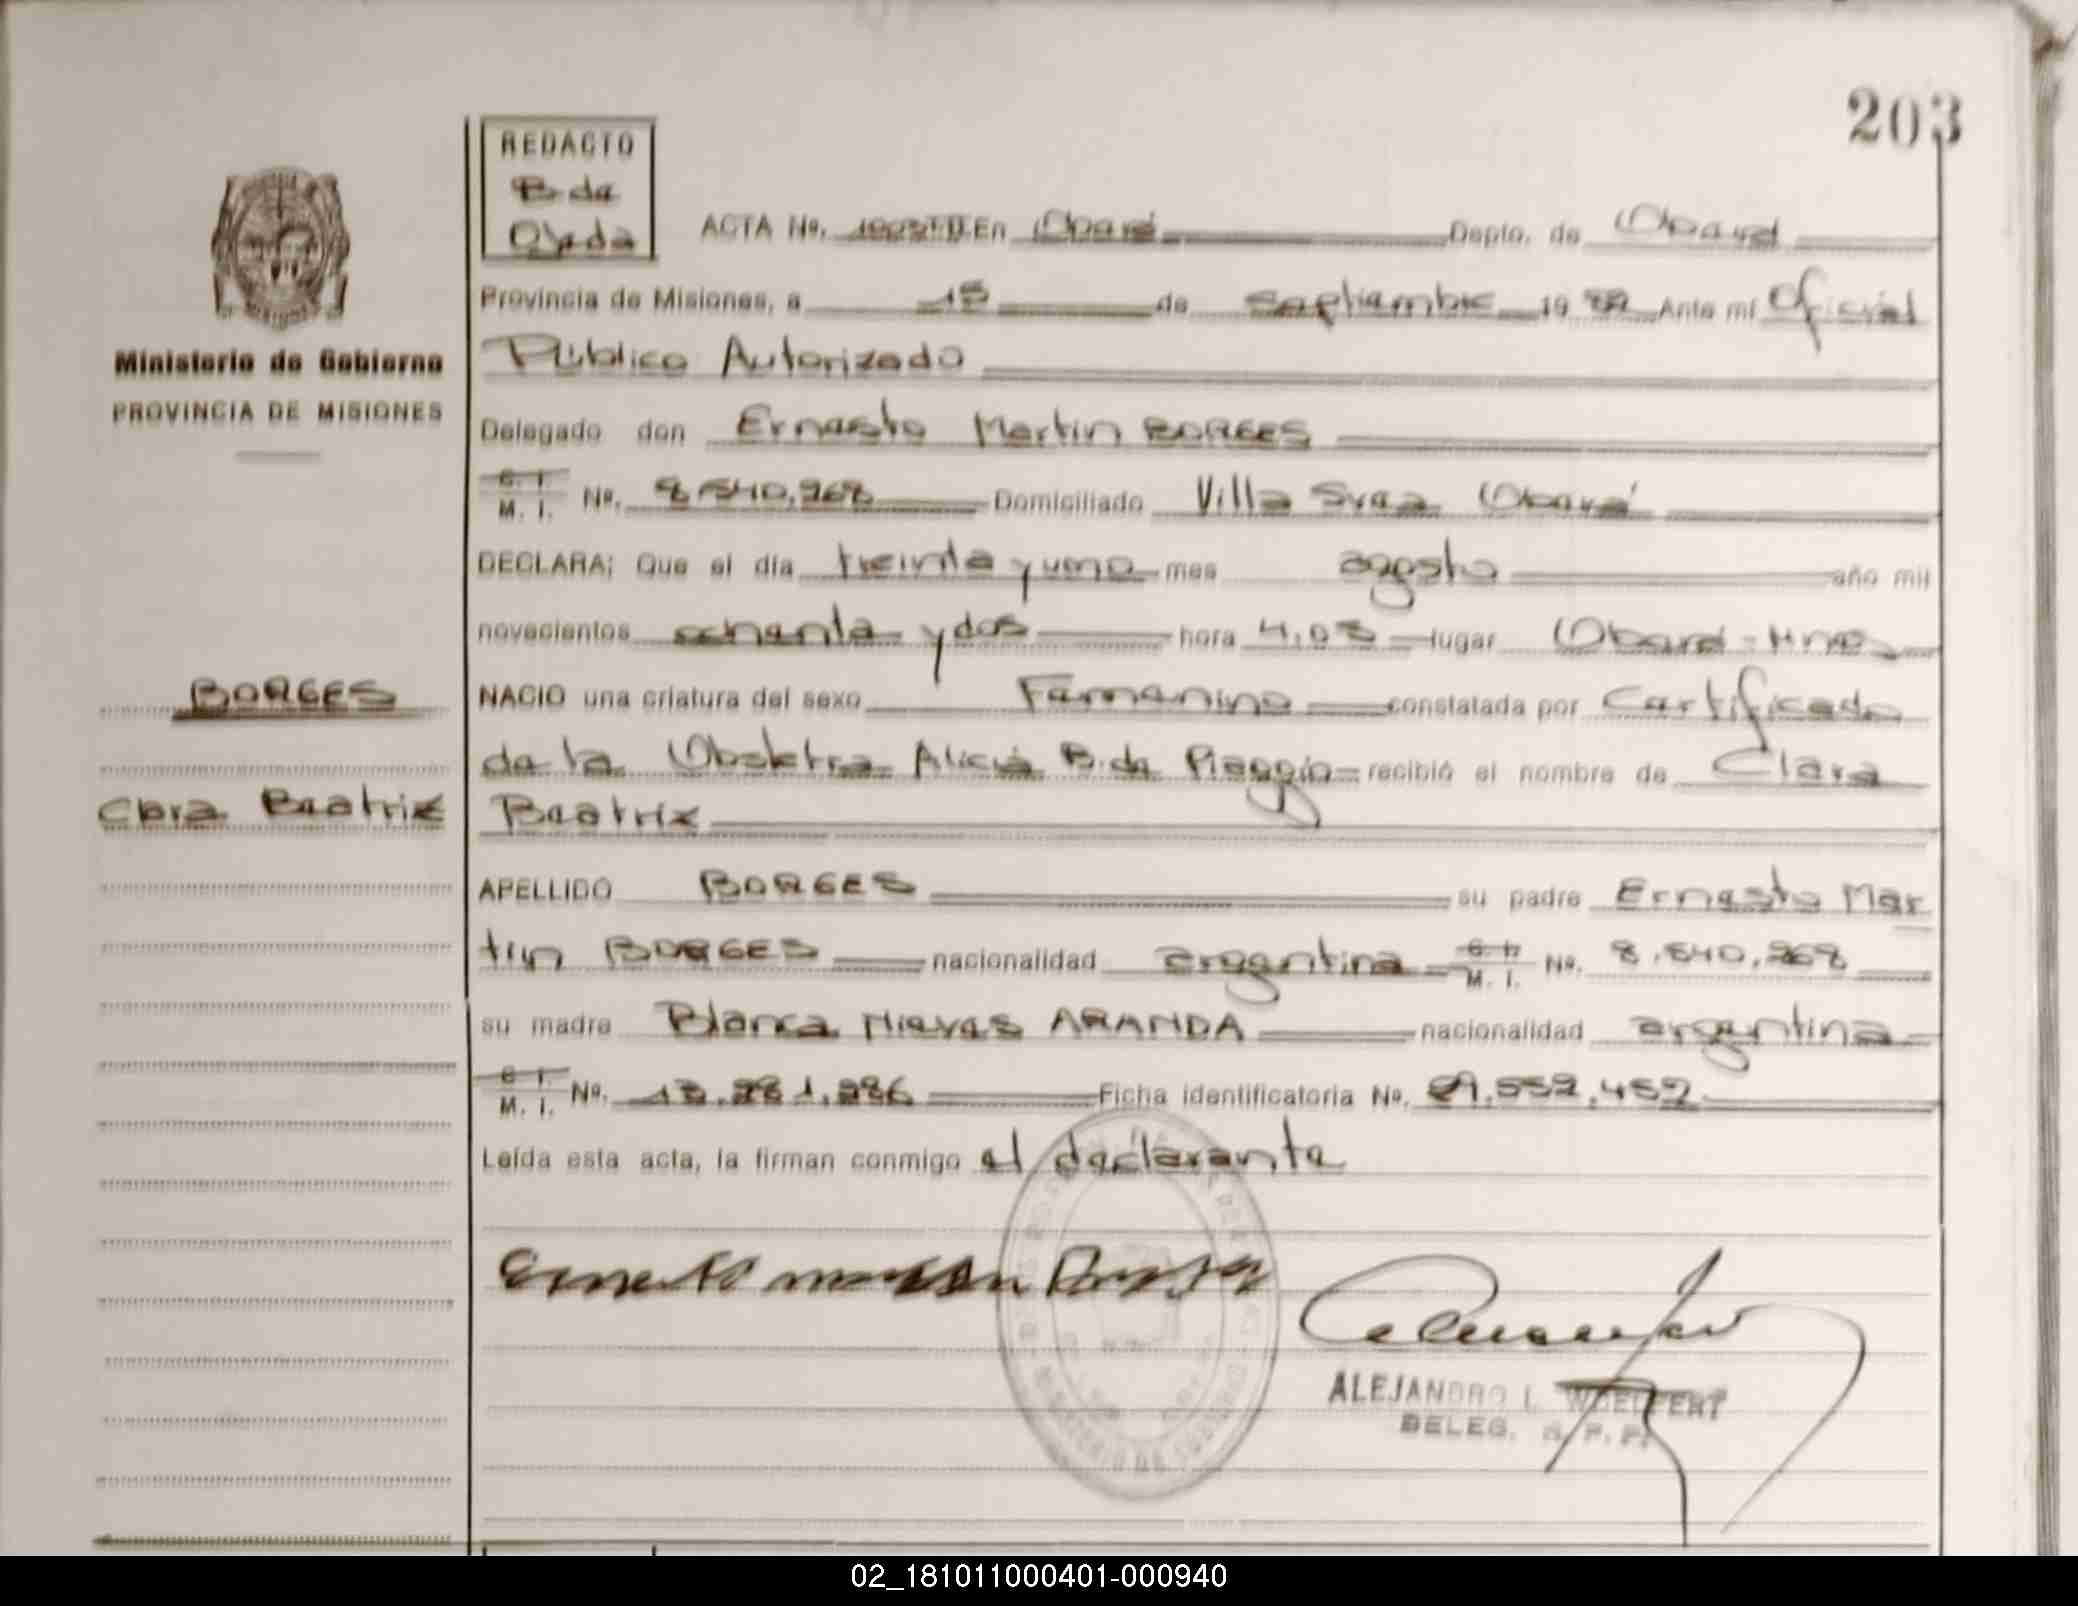 203
REDACTO
B. de
Ojeda
ACTA Nº. En Oberá Depto. de Oberá
Provincia de Misiones, a de septiembre 19 82 Ante mí Oficial
Público Autorizado
Ministerio de Gobierno
PROVINCIA DE MISIONES
Delegado don Ernesto Martin BORGES
C. I.
M. I. Nº. 8.540.268 Domiciliado Villa Svea Oberá
DECLARA; Que el día treinta y uno mes agosto año mil
novecientos ochenta y dos hora 4,05 lugar Oberá - Mnes
BORGES
NACIO una criatura del sexo Femenino constatada por Certificado
de la Obstetra Alicia B. de Piaggio recibió el nombre de Clara
Clara Beatriz
Beatriz
APELLIDO BORGES su padre Ernesto Mar
tin BORGES nacionalidad argentina C. I.
M. I. Nº. 8.540.268
su madre Blanca Nieves ARANDA nacionalidad argentina
C. I.
M. I. Nº. Ficha identificatoria Nº. 29.552.452
Leída esta acta, la firman conmigo el declarante
Ernesto Martin Borges
ALEJANDRO L. WOELFERT
DELEG. R. P. P.
02_181011000401-000940